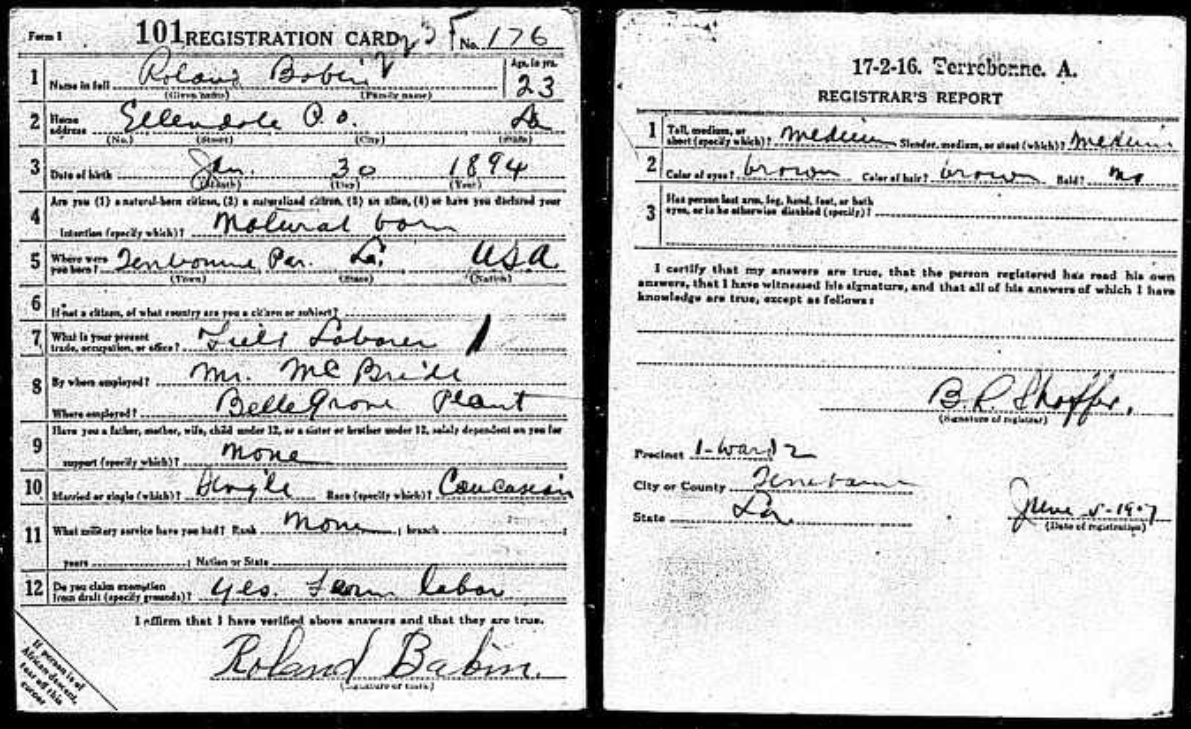 Form 1 101 REGISTRATION CARD No. 176
1 Name in full Roland Babin Age, in yrs. 23
(Given name) (Family name)
2 Home address Ellendale P.O. La
(No.) (Street) (City) (State)
3 Date of birth Jan. 30 1894
(Month) (Day) (Year)
4 Are you (1) a natural-born citizen, (2) a naturalized citizen, (3) an alien, (4) or have you declared your
intention (specify which)? Natural born
5 Where were you born? Terrebonne Par. La. USA
(Town) (State) (Nation)
6 If not a citizen, of what country are you a citizen or subject?
7 What is your present trade, occupation, or office? Field Laborer
8 By whom employed? Mr. McBride
Where employed? Belle Grove Plant
9 Have you a father, mother, wife, child under 12, or a sister or brother under 12, solely dependent on you for
support (specify which)? None
10 Married or single (which)? Single Race (specify which)? Caucasian
11 What military service have you had? Rank None ; branch ;
years ; Nation or State
12 Do you claim exemption from draft (specify grounds)? Yes. Farm labor
I affirm that I have verified above answers and that they are true.
Roland Babin.
(Signature or mark)
If person is of
African descent,
tear off this
corner
17-2-16. Terrebonne. A.
REGISTRAR'S REPORT
1 Tall, medium, or short (specify which)? Medium Slender, medium, or stout (which)? Medium
2 Color of eyes? brown Color of hair? brown Bald? no
3 Has person lost arm, leg, hand, foot, or both
eyes, or is he otherwise disabled (specify)?
I certify that my answers are true, that the person registered has read his own
answers, that I have witnessed his signature, and that all of his answers of which I have
knowledge are true, except as follows:
(Signature of registrar)
Precinct 1-Ward 2
City or County Terrebonne
State La.
June 5-1917
(Date of registration)